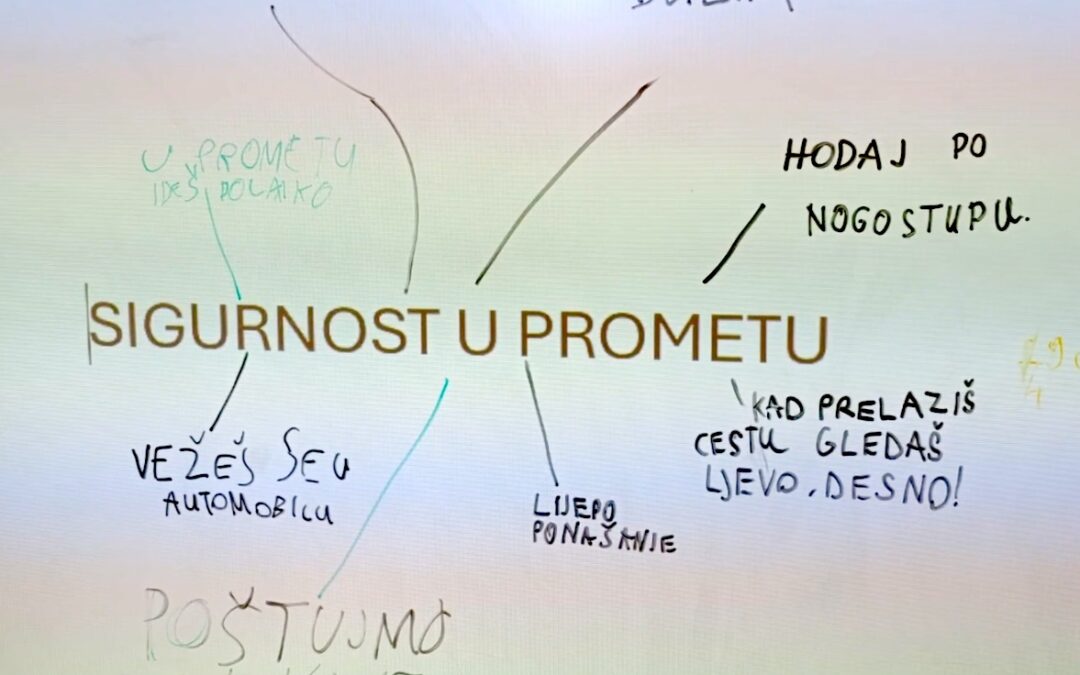 HODAJ PO
NOGOSTUPU.
U PROMETU
IDEŠ POLAKO
SIGURNOST U PROMETU
VEŽEŠ SE U
AUTOMOBILU
LIJEPO
PONAŠANJE
KAD PRELAZIŠ
CESTU GLEDAŠ
LJEVO, DESNO!
POŠTUJMO